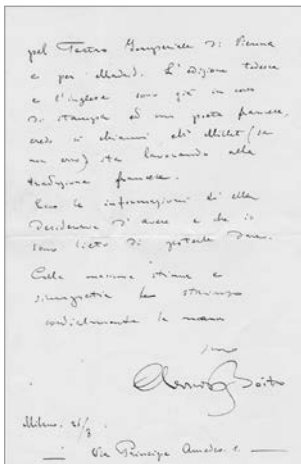 pel Teatro Imperiale di Vienna
e per Madrid. L'edizione tedesca
e l'inglese sono già in corso
di stampa ed un poeta francese,
credo si chiami M.r Milliet (se
non erro) sta lavorando alla
traduzione francese.
Ecco le informazioni ch'ella
desiderava d'avere e che io
sono lieto di poterle dare.
Colla massima stima e
simpatia le stringo
cordialmente la mano
suo
Arrigo Boito
Milano. 21/3
Via Principe Amedeo. 1.